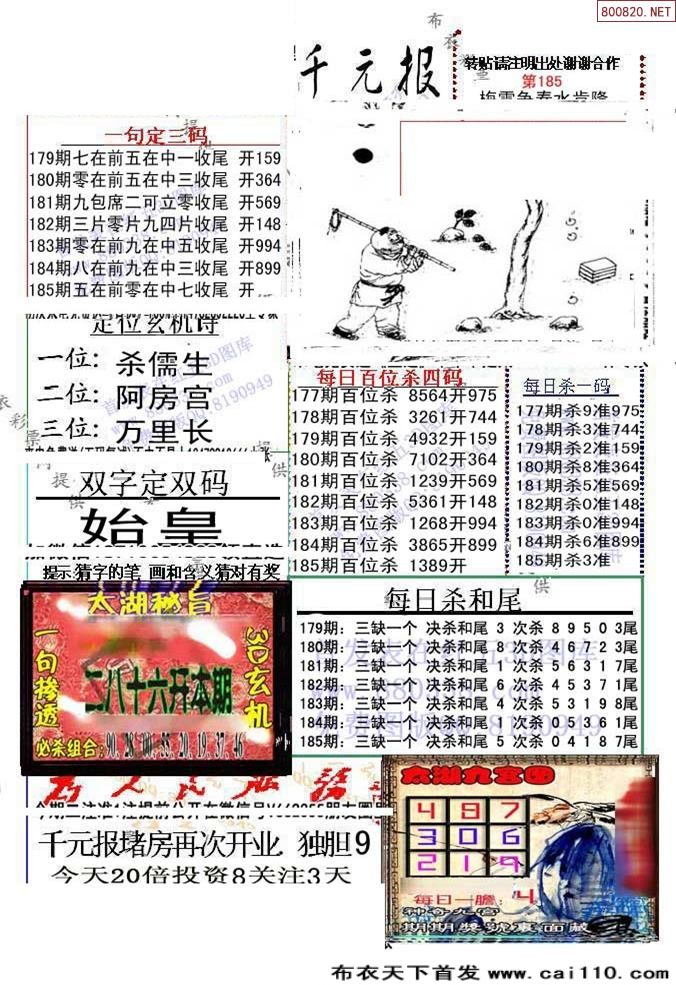 800820.NET
千元报
转贴请注明出处谢谢合作
第185
梅雪争春水肯降
一句定三码
179期七在前五在中一收尾 开159
180期零在前五在中三收尾 开364
181期九包席二可立零收尾 开569
182期三片零片九四片收尾 开148
183期零在前九在中五收尾 开994
184期八在前九在中三收尾 开899
185期五在前零在中七收尾 开
定位玄机诗
一位: 杀儒生
二位: 阿房宫
三位: 万里长
每日百位杀四码
177期百位杀 8564开975
178期百位杀 3261开744
179期百位杀 4932开159
180期百位杀 7102开364
181期百位杀 1239开569
182期百位杀 5361开148
183期百位杀 1268开994
184期百位杀 3865开899
185期百位杀 1389开
每日杀一码
177期杀9准975
178期杀3准744
179期杀2准159
180期杀8准364
181期杀5准569
182期杀0准148
183期杀0准994
184期杀6准899
185期杀3准
双字定双码
始皇
提示:猜字的笔 画和含义猜对有奖
太湖秘旨
一句掺透
3D玄机
二八十六开本期
必杀组合:90,28,00,55,20,19,37,46
每日杀和尾
179期: 三缺一个 决杀和尾 3 次杀 8 9 5 0 3尾
180期: 三缺一个 决杀和尾 8 次杀 4 6 7 2 3尾
181期: 三缺一个 决杀和尾 1 次杀 5 6 3 1 7尾
182期: 三缺一个 决杀和尾 6 次杀 4 5 3 7 1尾
183期: 三缺一个 决杀和尾 4 次杀 5 3 1 9 8尾
184期: 三缺一个 决杀和尾 1 次杀 0 5 3 6 1尾
185期: 三缺一个 决杀和尾 5 次杀 0 4 1 8 7尾
千元报堵房再次开业 独胆9
今天20倍投资8关注3天
太湖九宫图
4 8 7
3 0 6
2 1 9
每日一膽: 4
神奇九宫
期期獎號裏面藏
布衣天下首发 www.cai110.com